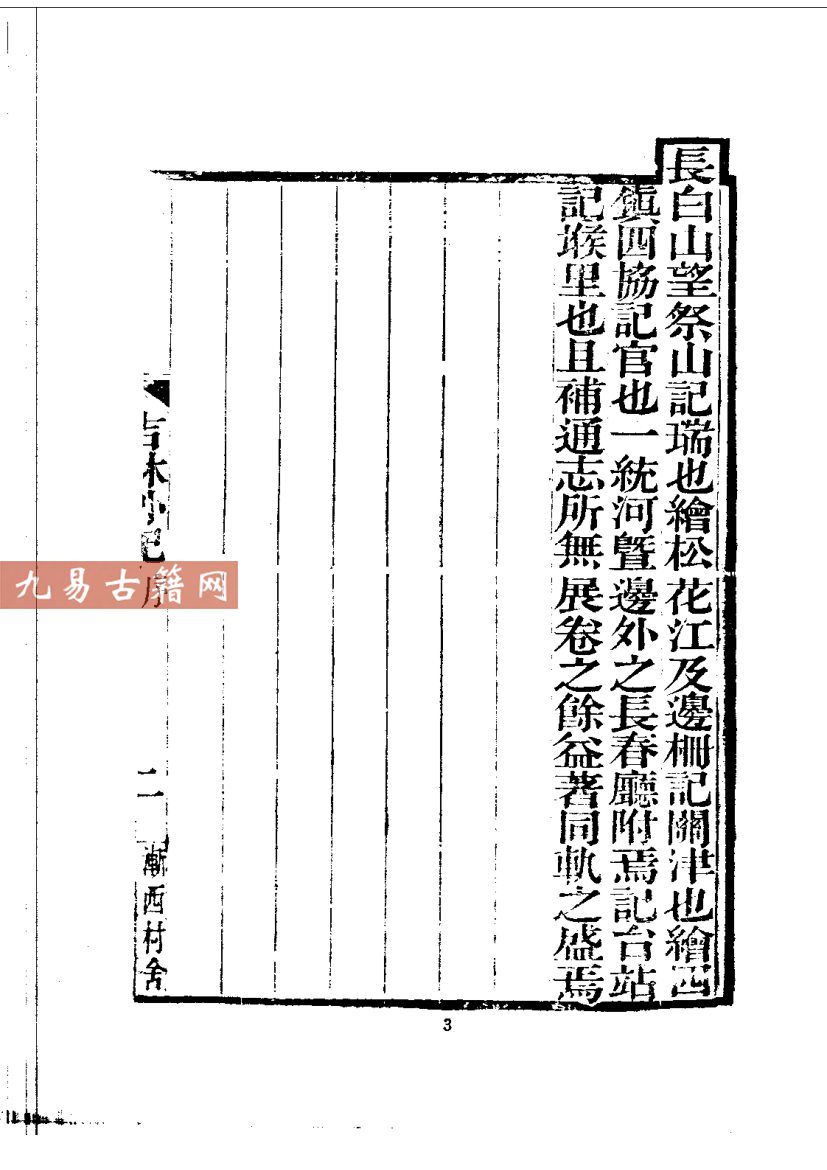 長白山望祭山記瑞也繪松花江及邊柵記關津也繪四
鎮四協記官也一統河曁邊外之長春廳附焉記台站
記堠里也且補通志所無展卷之餘益著同軌之盛焉
吉林小記序
二
漸西村舍
九易古籍网
3